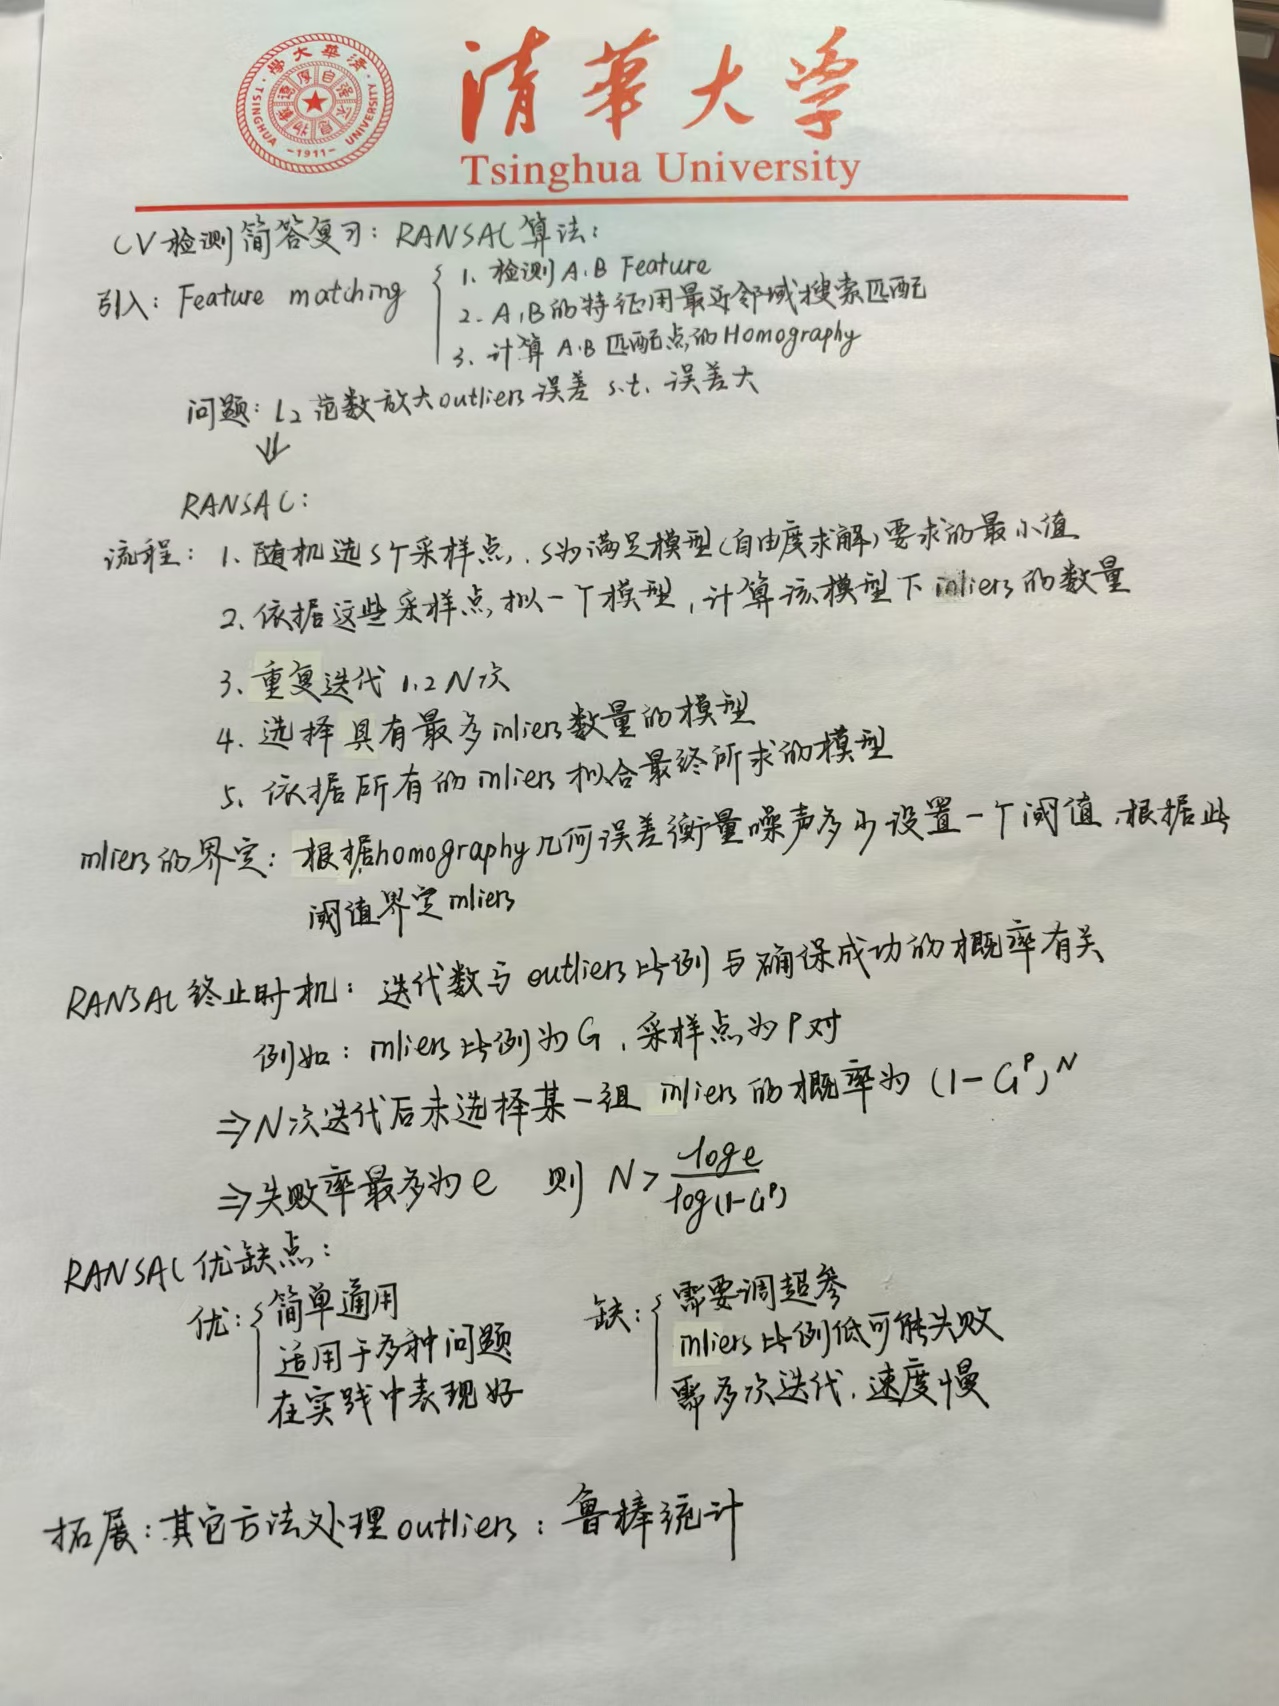 清華大学
Tsinghua University
TSINGHUA UNIVERSITY
-1911-
CV检测简答复习：RANSAC算法：
引入：Feature matching
1、检测A、B Feature
2、A、B的特征用最近邻域搜索匹配
3、计算A、B匹配点的Homography
问题：L2范数放大outliers误差 s.t. 误差大
⇓
RANSAC：
流程：1、随机选s个采样点，s为满足模型（自由度求解）要求的最小值
2、依据这些采样点，拟一个模型，计算该模型下inliers的数量
3、重复迭代1,2 N次
4、选择具有最多inliers数量的模型
5、依据所有的inliers拟合最终所求的模型
inliers的界定：根据homography几何误差衡量噪声多少设置一个阈值，根据此
阈值界定inliers
RANSAC终止时机：迭代数与outliers比例与确保成功的概率有关
例如：inliers比例为G，采样点为P对
⇒N次迭代后未选择某一组inliers的概率为 (1-G^P)^N
⇒失败率最多为e 则 N > log e / log(1-G^P)
RANSAC优缺点：
优：简单通用
适用于多种问题
在实践中表现好
缺：需要调超参
inliers比例低可能失败
需多次迭代，速度慢
拓展：其它方法处理outliers：鲁棒统计